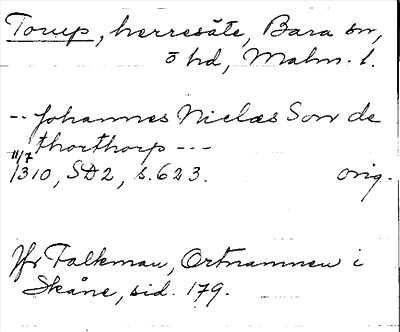 Torup, herresäte, Bara sn,
ö hd, Malm. l.
-- Johannes Nielæs Son de
thorthorp ---
11/7
1310, SD2, s. 623. orig.
Jfr Falkman, Ortnamnen i
Skåne, sid. 179.